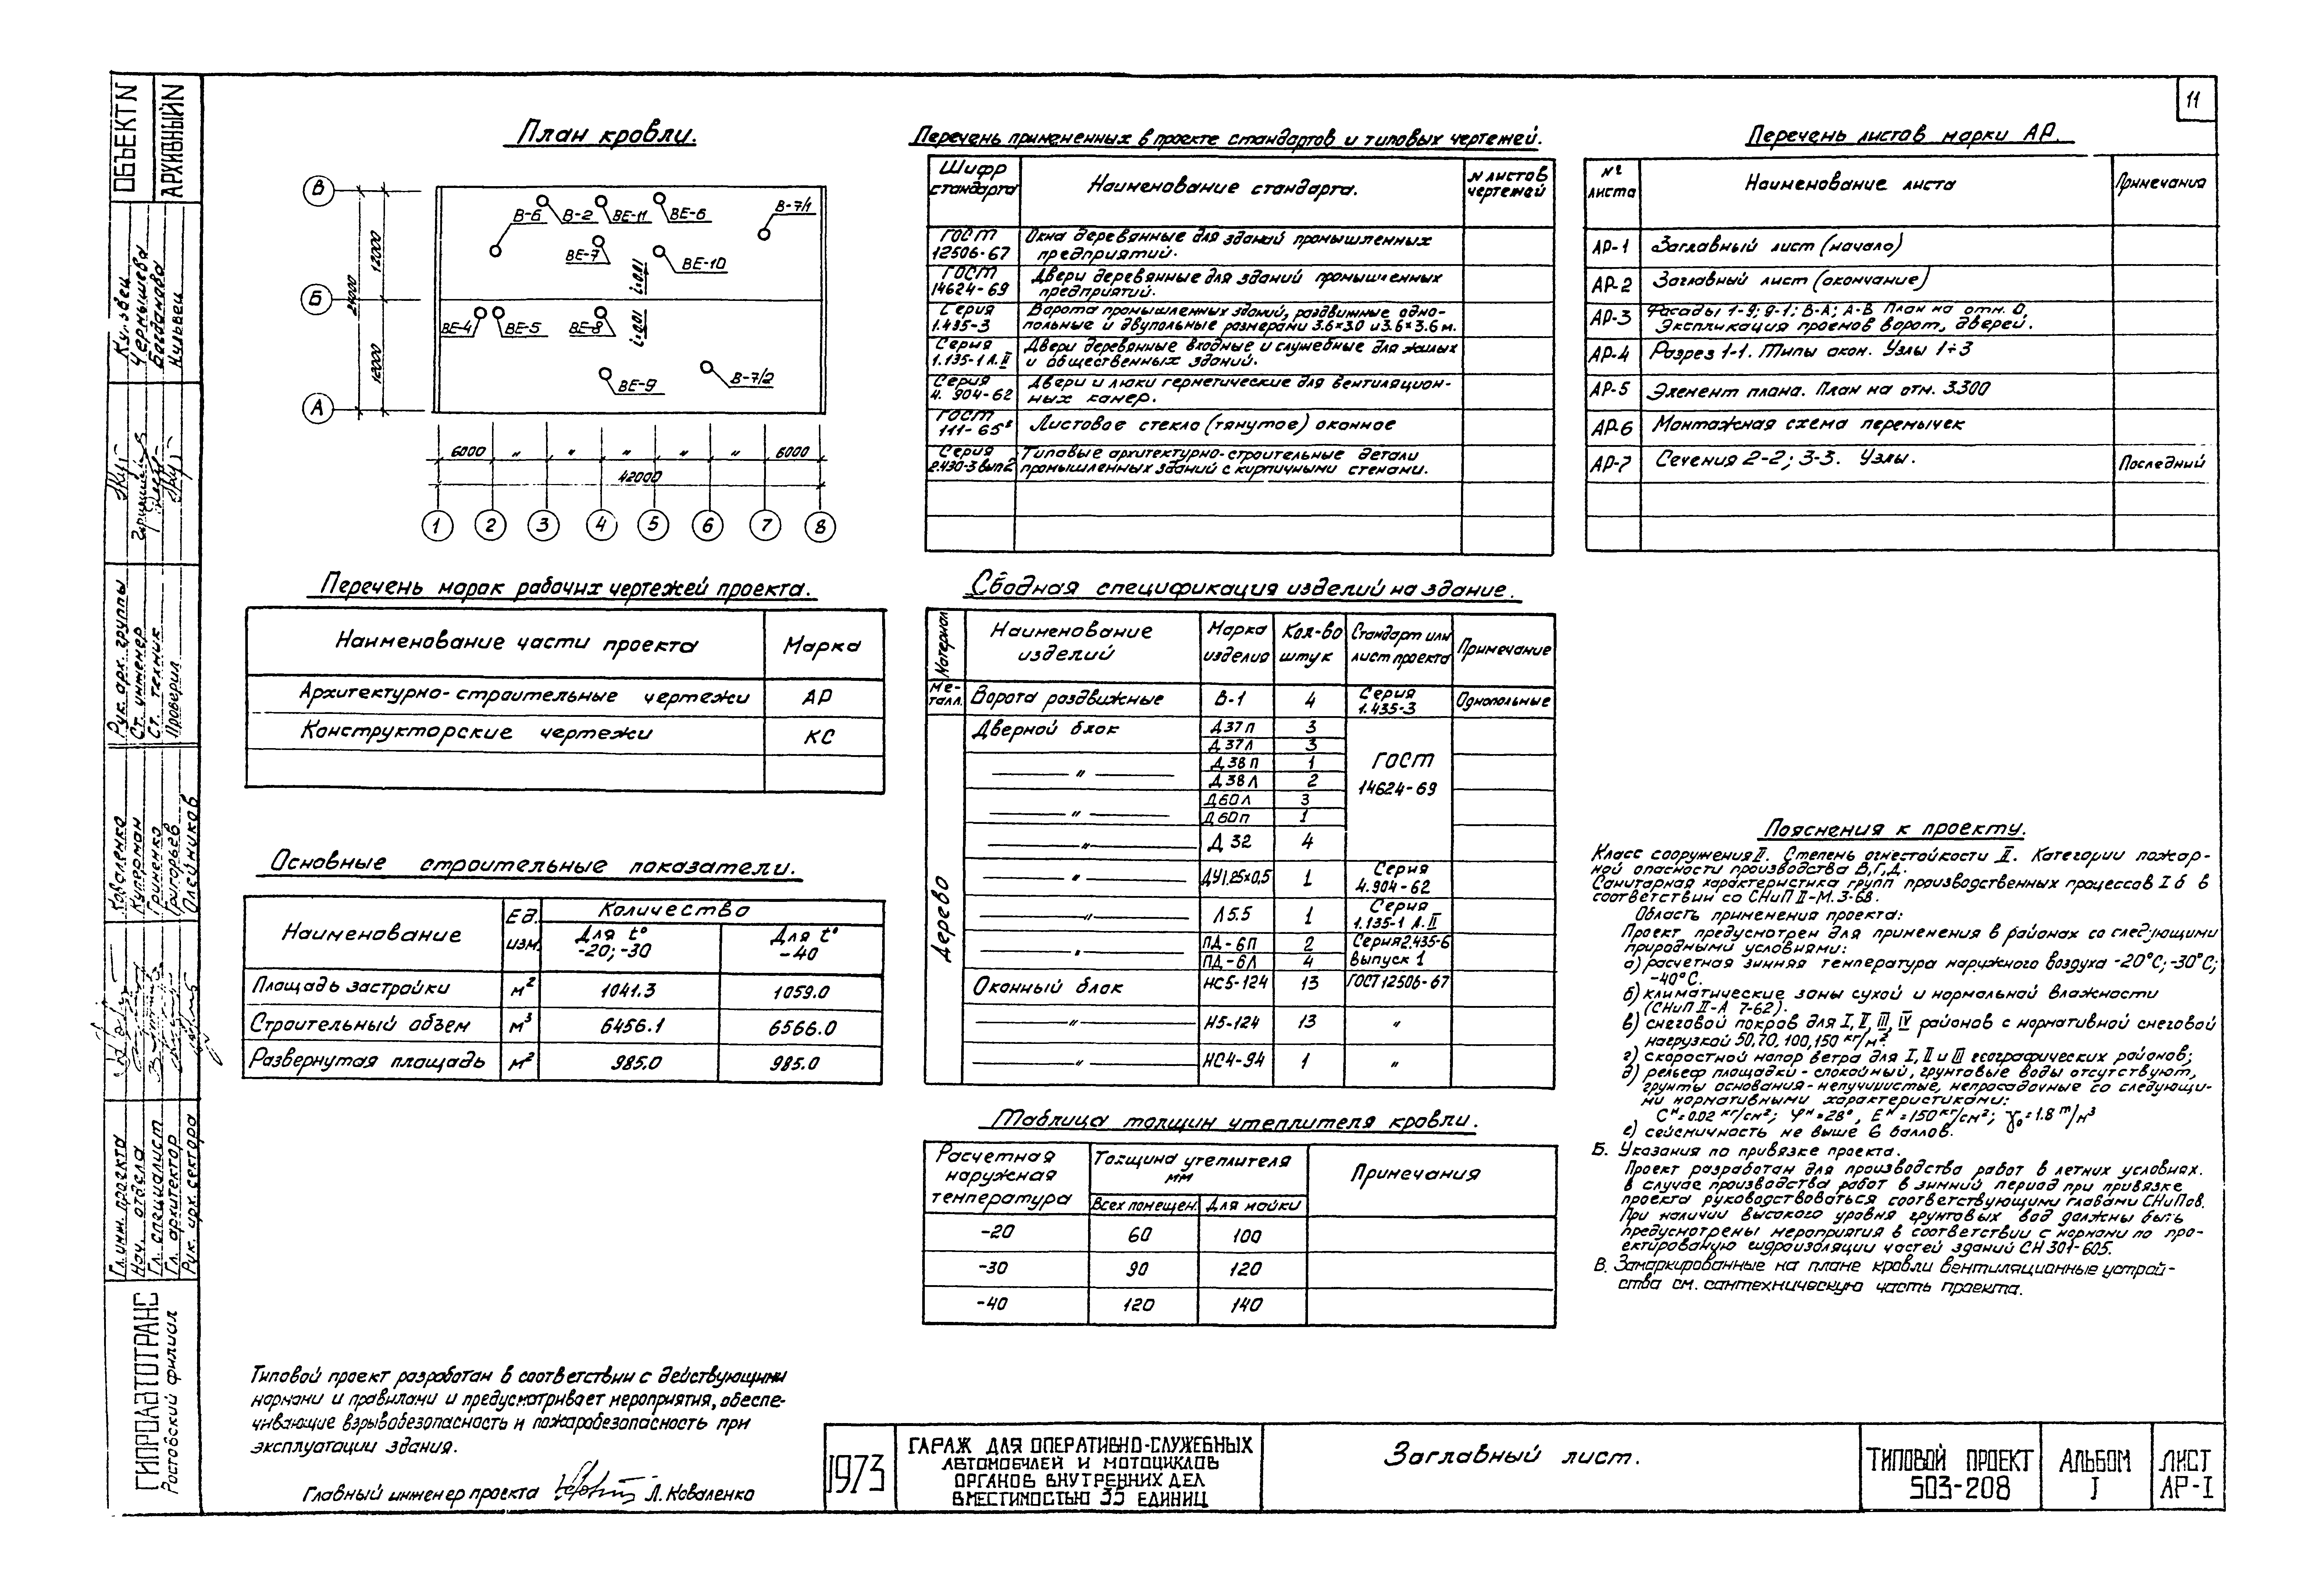 11
План кровли.
В
Б
А
12000
24000
12000
В-6
В-2
ВЕ-11
ВЕ-6
В-7/1
ВЕ-7
ВЕ-10
i=0.01
i=0.01
ВЕ-4
ВЕ-5
ВЕ-8
ВЕ-9
В-7/2
6000 " " " " " 6000
42000
1 2 3 4 5 6 7 8
Перечень примененных в проекте стандартов и типовых чертежей.
Шифр стандарта
Наименование стандарта.
N листов чертежей
ГОСТ 12506-67
Окна деревянные для зданий промышленных
предприятий.
ГОСТ 14624-69
Двери деревянные для зданий промышленных
предприятий.
Серия 1.435-3
Ворота промышленных зданий, раздвижные одно-
польные и двупольные размерами 3.6×3.0 и 3.6×3.6 м.
Серия 1.135-1 Л.II
Двери деревянные входные и служебные для жилых
и общественных зданий.
Серия 4.904-62
Двери и люки герметические для вентиляцион-
ных камер.
ГОСТ 111-65
Листовое стекло (тянутое) оконное
Серия 2.430-3 вып 2
Типовые архитектурно-строительные детали
промышленных зданий с кирпичными стенами.
Перечень листов марки АР.
№ листа
Наименование листа
Примечания
АР-1 Заглавный лист (начало)
АР-2 Заглавный лист (окончание)
АР-3 Фасады 1-9; 9-1; В-А; А-В План на отм. 0,
Экспликация проемов ворот, дверей.
АР-4 Разрез 1-1. Типы окон. Узлы 1÷3
АР-5 Элемент плана. План на отм. 3.300
АР-6 Монтажная схема перемычек
АР-7 Сечения 2-2; 3-3. Узлы. Последний
Перечень марок рабочих чертежей проекта.
Наименование части проекта Марка
Архитектурно-строительные чертежи АР
Конструкторские чертежи КС
Основные строительные показатели.
Наименование
Ед. изм.
Количество
Для t° -20; -30
Для t° -40
Площадь застройки м² 1041.3 1059.0
Строительный объем м³ 6456.1 6566.0
Развернутая площадь м² 985.0 985.0
Сводная спецификация изделий на здание.
Материал
Наименование изделий
Марка изделия
Кол-во штук
Стандарт или лист проекта
Примечание
Ме-талл.
Ворота раздвижные В-1 4 Серия 1.435-3 Однопольные
Дерево
Дверной блок Д37п 3
Д37Л 3
ГОСТ 14624-69
" Д38п 1
Д38Л 2
" Д60Л 3
Д60п 1
" Д 32 4
" ДУ1.25х0,5 1 Серия 4.904-62
" Л5.5 1 Серия 1.135-1 Л.II
" ПД-6П 2 Серия 2.435-6
ПД-6Л 4 Выпуск 1
Оконный блок НС5-124 13 ГОСТ 12506-67
" Н5-124 13 "
" НС4-94 1 "
Таблица толщин утеплителя кровли.
Расчетная наружная температура
Толщина утеплителя мм
Всех помещен.
Для мойки
Примечания
-20 60 100
-30 90 120
-40 120 140
Пояснения к проекту.
Класс сооружения II. Степень огнестойкости II. Категории пожар-
ной опасности производства В,Г,Д.
Санитарная характеристика групп производственных процессов I б в
соответствии со СНиП II-М.3-68.
Область применения проекта:
Проект предусмотрен для применения в районах со следующими
природными условиями:
а) расчетная зимняя температура наружного воздуха -20°С; -30°С;
-40°С.
б) климатические зоны сухой и нормальной влажности
(СНиП II-А 7-62).
в) снеговой покров для I, II, III, IV районов с нормативной снеговой
нагрузкой 50, 70, 100, 150 кг/м².
г) скоростной напор ветра для I, II и III географических районов;
д) рельеф площадки - спокойный, грунтовые воды отсутствуют,
грунты основания - непучинистые, непросадочные со следующи-
ми нормативными характеристиками:
Сᴴ=0.02 кг/см²; φᴴ=28°, Еᴴ=150 кг/см²; γ₀=1.8 т/м³
е) сейсмичность не выше 6 баллов.
Б. Указания по привязке проекта.
Проект разработан для производства работ в летних условиях.
В случае производства работ в зимний период при привязке
проекта руководствоваться соответствующими главами СНиПов.
При наличии высокого уровня грунтовых вод должны быть
предусмотрены мероприятия в соответствии с нормами по про-
ектированую гидроизоляции частей зданий СН 301-605.
В. Замаркированные на плане кровли вентиляционные устрой-
ства см. сантехническую часть проекта.
Типовой проект разработан в соответствии с действующими
нормами и правилами и предусматривает мероприятия, обеспе-
чивающие взрывобезопасность и пожаробезопасность при
эксплуатации здания.
Главный инженер проекта Л. Коваленко
1973
ГАРАЖ ДЛЯ ОПЕРАТИВНО-СЛУЖЕБНЫХ
АВТОМОБИЛЕЙ И МОТОЦИКЛОВ
ОРГАНОВ ВНУТРЕННИХ ДЕЛ
ВМЕСТИМОСТЬЮ 35 ЕДИНИЦ
Заглавный лист.
ТИПОВОЙ ПРОЕКТ
503-208
АЛЬБОМ
I
ЛИСТ
АР-I
ОБЪЕКТ N
АРХИВНЫЙ N
Чернышева
Богданова
Рук. арх. группы
Ст. инженер
Ст. техник
Проверил
Коваленко
Куперман
Гриненко
Григорьев
Олейников
Гл. инж. проекта
Нач. отдела
Гл. специалист
Гл. архитектор
Рук. арх. сектора
ГИПРОАВТОТРАНС
Ростовский филиал